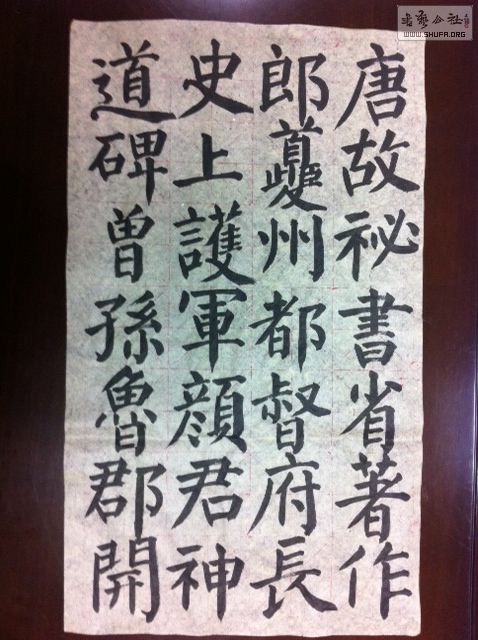 唐故祕書省著作
郎夔州都督府長
史上護軍顔君神
道碑曾孫魯郡開
書藝公社
WWW.SHUFA.ORG